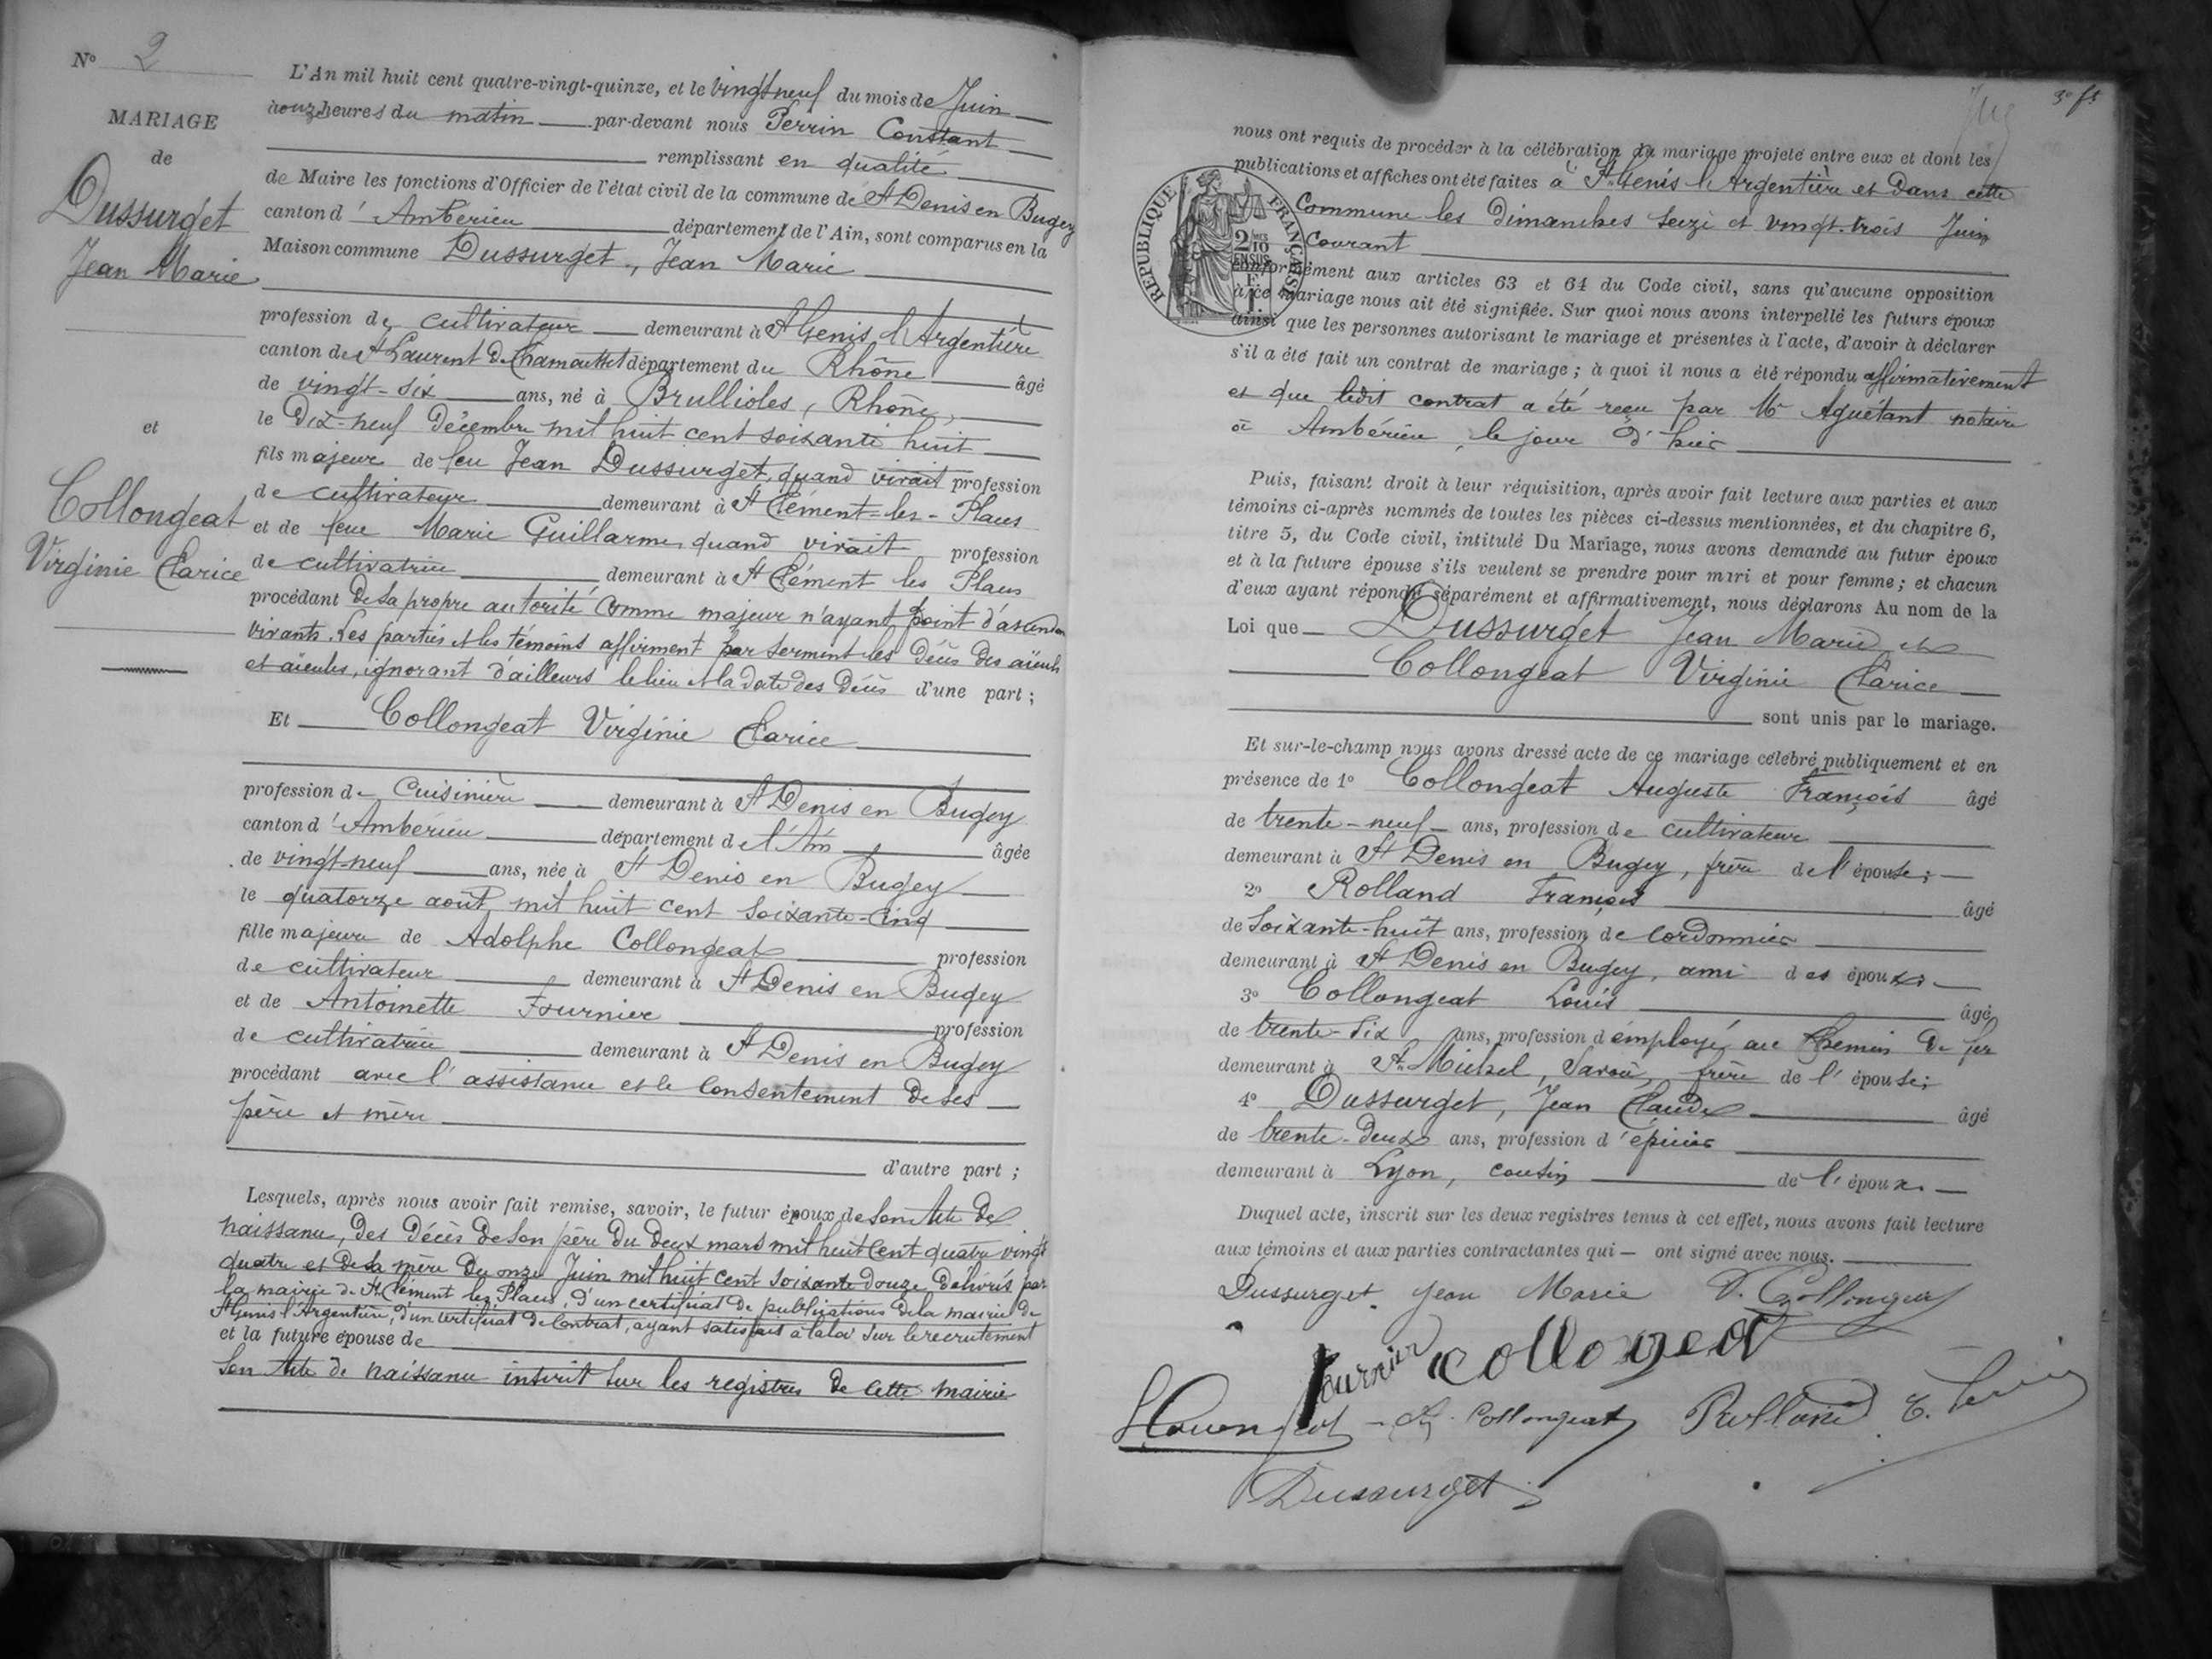 N° 2
MARIAGE
de
Dussurget
Jean Marie
et
Collongeat
Virginie Clarice
L'An mil huit cent quatre-vingt-quinze, et le vingt neuf du mois de Juin
à onze heures du matin par-devant nous Perrin Constant
remplissant en qualité
de Maire les fonctions d'Officier de l'état civil de la commune de St Denis en Bugey
canton d'Ambérieu département de l'Ain, sont comparus en la
Maison commune Dussurget, Jean Marie
profession de cultivateur demeurant à St Genis l'Argentière
canton de St Laurent de Chamousset département du Rhône âgé
de vingt-six ans, né à Brullioles, Rhône,
le Dix-neuf Décembre mil huit cent soixante huit
fils majeur de feu Jean Dussurget, quand vivait profession
de cultivateur demeurant à St Clément-les-Places
et de feue Marie Guillarme, quand vivait profession
de cultivatrice demeurant à St Clément les Places
procédant de sa propre autorité comme majeur n'ayant point d'ascendans
vivants. Les parties et les témoins affirment par serment les Décès des aïeuls
et aïeules, ignorant d'ailleurs le lieu et la date des Décès d'une part ;
Et Collongeat Virginie Clarice
profession de Cuisinière demeurant à St Denis en Bugey
canton d'Ambérieu département de l'Ain âgée
de vingt-neuf ans, née à St Denis en Bugey
le quatorze août mil huit cent soixante-cinq
fille majeure de Adolphe Collongeat profession
de cultivateur demeurant à St Denis en Bugey
et de Antoinette Fournier profession
de cultivatrice demeurant à St Denis en Bugey
procédant avec l'assistance et le consentement de ses
père et mère
d'autre part ;
Lesquels, après nous avoir fait remise, savoir, le futur époux de son Acte de
naissance, des Décès de son père du deux mars mil huit cent quatre vingt
quatre et de sa mère du onze Juin mil huit cent soixante douze délivrés par
la mairie de St Clément les Places, d'un certificat de publications de la mairie de
St Genis l'Argentière, d'un certificat de contrat, ayant satisfait à la loi sur le recrutement
et la future épouse de
son Acte de naissance inscrit sur les registres de cette mairie
3e ft
nous ont requis de procéder à la célébration du mariage projeté entre eux et dont les
publications et affiches ont été faites à St Genis l'Argentière et dans cette
Commune les dimanches seize et vingt-trois Juin
Courant
RÉPUBLIQUE FRANÇAISE
2/10 EN SUS
conformément aux articles 63 et 64 du Code civil, sans qu'aucune opposition
à ce mariage nous ait été signifiée. Sur quoi nous avons interpellé les futurs époux
ainsi que les personnes autorisant le mariage et présentes à l'acte, d'avoir à déclarer
s'il a été fait un contrat de mariage ; à quoi il nous a été répondu affirmativement
et que ledit contrat a été reçu par Me Aguétant notaire
à Ambérieu, le jour d'hier
Puis, faisant droit à leur réquisition, après avoir fait lecture aux parties et aux
témoins ci-après nommés de toutes les pièces ci-dessus mentionnées, et du chapitre 6,
titre 5, du Code civil, intitulé Du Mariage, nous avons demandé au futur époux
et à la future épouse s'ils veulent se prendre pour mari et pour femme ; et chacun
d'eux ayant répondu séparément et affirmativement, nous déclarons Au nom de la
Loi que Dussurget Jean Marie et
Collongeat Virginie Clarice
sont unis par le mariage.
Et sur-le-champ nous avons dressé acte de ce mariage célébré publiquement et en
présence de 1° Collongeat Auguste François âgé
de trente-neuf ans, profession de cultivateur
demeurant à St Denis en Bugey, frère de l'épouse ;
2° Rolland François âgé
de soixante-huit ans, profession de cordonnier
demeurant à St Denis en Bugey, ami des époux ;
3° Collongeat Louis âgé
de trente-six ans, profession d'employé au Chemin de fer
demeurant à St Michel, Savoie, frère de l'épouse ;
4° Dussurget, Jean Claude âgé
de trente-deux ans, profession d'épicier
demeurant à Lyon, cousin de l'époux.
Duquel acte, inscrit sur les deux registres tenus à cet effet, nous avons fait lecture
aux témoins et aux parties contractantes qui — ont signé avec nous.
Dussurget Jean Marie V. Collongeat
fournier collogeat
Collongeat Rolland
Dussurget